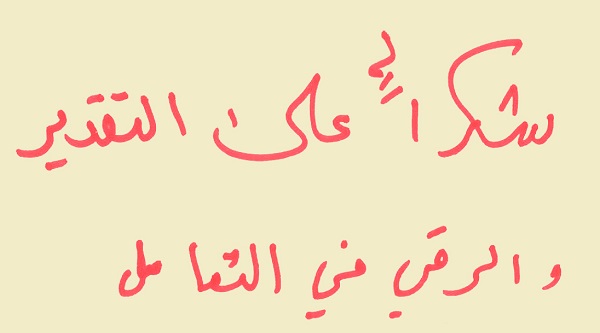 شكراً على التقدير
والرقي في التعامل